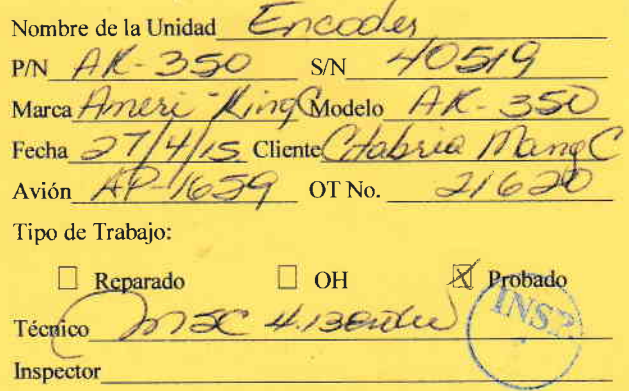 Nombre de la Unidad Encoder
P/N AK-350 S/N 40519
Marca Ameri-King C Modelo AK-350
Fecha 27/4/15 Cliente Citabria Mang C
Avión AP-1659 OT No. 21620
Tipo de Trabajo:
Reparado OH Probado
Técnico
INSP
Inspector